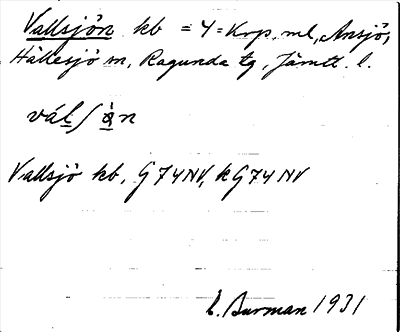 Vallsjön kb = 4 = Krp. ml, Ansjö,
Hällesjö sn, Ragunda tg, Jämtl. l.
vál∫ån
Vallsjö kb, G74NV, k G74NV
E. Burman 1931